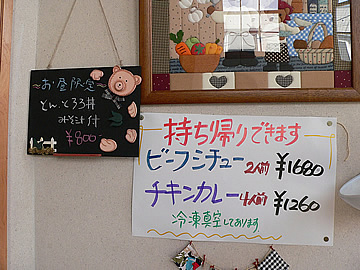 ~お昼限定~
とんとろ丼
みそ汁付
¥800-
持ち帰りできます
ビーフシチュー 2人前 ¥1680
チキンカレー 4人前 ¥1260
冷凍真空しております